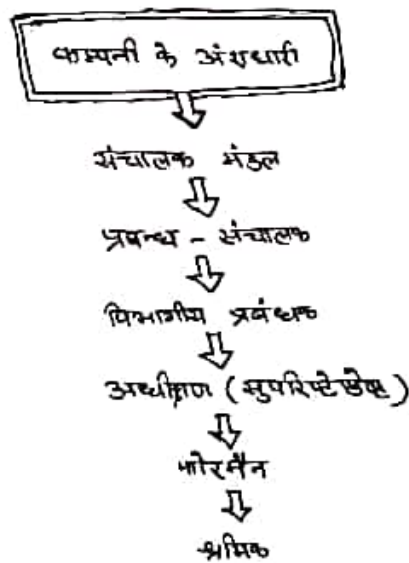 कम्पनी के अंशधारी
संचालक मंडल
प्रबन्ध - संचालक
विभागीय प्रबंधक
अधीक्षण (सुपरिण्टेण्डेण्ट)
फोरमैन
श्रमिक